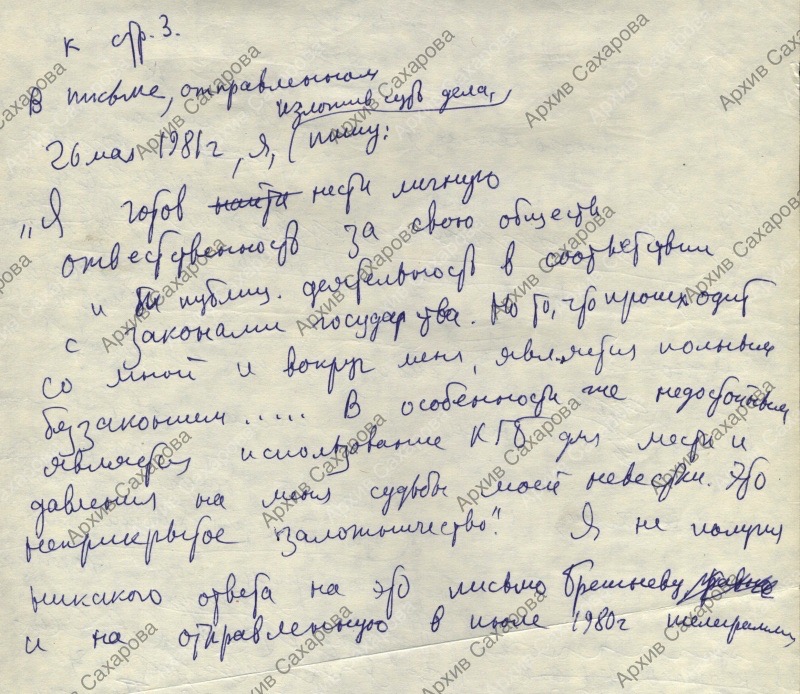 к стр. 3.
В письме, отправленном
изложив суть дела,
26 мая 1981 г, я, пишу:
„Я готов нести личную
ответственность за свою обществ
и публиц. деятельность в соответствии
с законами государства. Но то, что происходит
со мной и вокруг меня, является полным
беззаконием ..... В особенности же недостойным
является использование КГБ для мести и
давления на меня судьбы моей невестки. Это
неприкрытое заложничество". Я не получил
никакого ответа на это письмо Брежневу,
и на отправленную в июле 1980 г телеграмму
Архив Сахарова